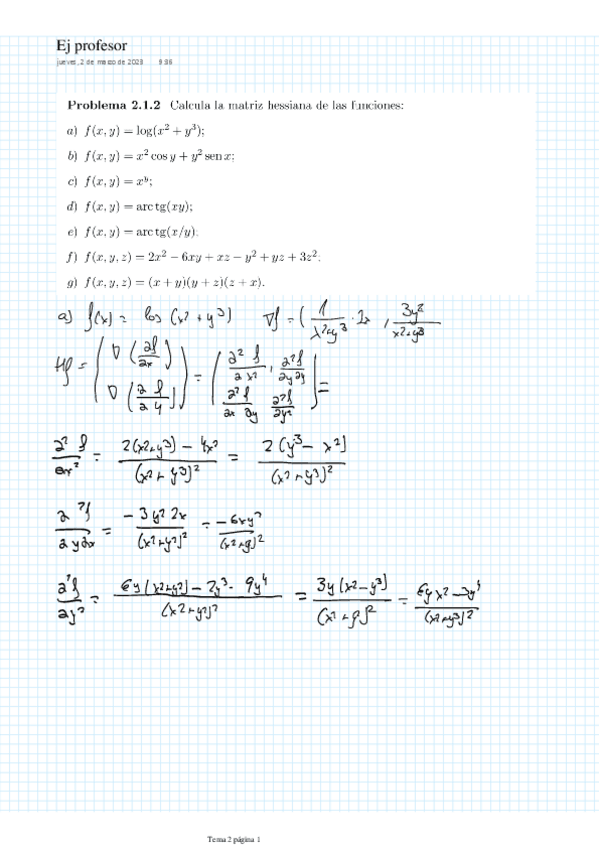 Ej profesor
jueves, 2 de marzo de 2023 9:36
Problema 2.1.2 Calcula la matriz hessiana de las funciones:
a) f(x, y) = log(x² + y³);
b) f(x, y) = x² cos y + y² sen x;
c) f(x, y) = xʸ;
d) f(x, y) = arc tg(xy);
e) f(x, y) = arc tg(x/y);
f) f(x, y, z) = 2x² − 6xy + xz − y² + yz + 3z²;
g) f(x, y, z) = (x + y)(y + z)(z + x).
a) f(x) = log (x² + y³) ∇f = ( 1/(x²+y³) · 2x , 3y²/(x²+y³)
Hf = ( ∇(∂f/∂x) ∇(∂f/∂y) ) = ( ∂²f/∂x² , ∂²f/∂y∂y ∂²f/∂x∂y ∂²f/∂y² ) =
∂²f/∂x² = (2(x²+y³) − 4x²)/(x² + y³)² = 2(y³ − x²)/(x² + y³)²
∂²f/∂y∂x = (− 3y² 2x)/(x²+y³)² = − 6xy²/(x²+y³)²
∂²f/∂y² = /(x²+y³)² = 3y(x²−y³)/(x²+y³)² = /(x²+y³)²
Tema 2 página 1